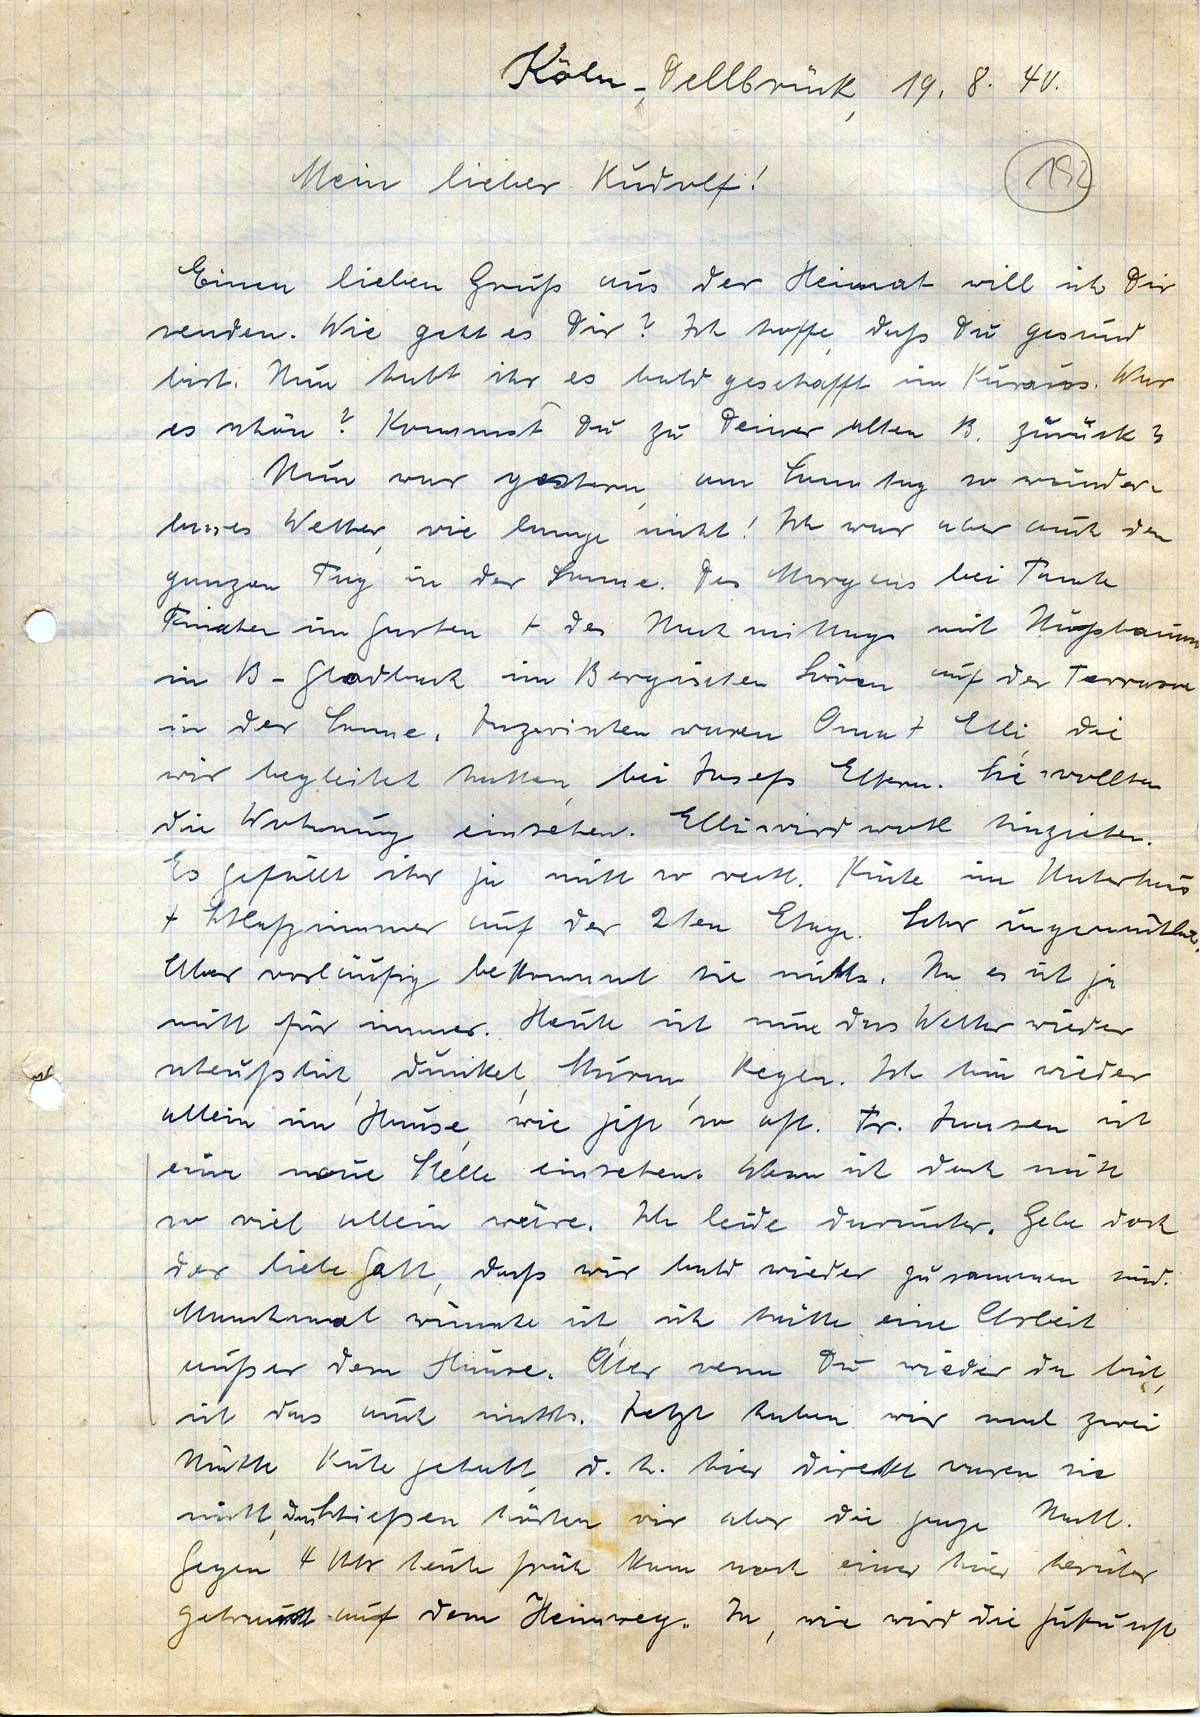 Köln-Dellbrück, 19. 8. 40.
192
Mein lieber Rudolf!
Einen lieben Gruß aus der Heimat will ich Dir
senden. Wie geht es Dir? Ich hoffe, daß Du gesund
bist. Nun habt ihr es bald geschafft im Kursus. War
es schön? Kommst Du zu Deiner alten B. zurück?
Nun war gestern, am Sonntag so wunder-
bares Wetter, wie lange nicht! Ich war aber auch den
ganzen Tag in der Sonne. Des Morgens bei Tante
im Garten + des Nachmittags mit Nußbaum
in B-Gladbach im Bergischen Löwen auf der Terrasse
in der Sonne. Inzwischen waren Oma + Elli, die
wir begleitet hatten, bei Josefs Eltern. Sie wollten
die Wohnung einsehen. Elli wird wohl hinziehen.
Es gefällt ihr ja nicht so recht. Küche im Unterhaus
+ Schlafzimmer auf der 2ten Etage. Sehr ungemütlich.
Aber vorläufig bekommt sie nichts. Na es ist ja
nicht für immer. Heute ist nun das Wetter wieder
scheußlich, dunkel, Sturm, Regen. Ich bin wieder
allein im Hause, wie jetzt so oft. Fr. Jansen ist
eine neue Stelle einsehen. Wenn ich doch nicht
so viel allein wäre. Ich leide darunter. Gebe doch
der liebe Gott, daß wir bald wieder zusammen sind.
Manchmal wünsche ich, ich hätte eine Arbeit
außer dem Hause. Aber wenn Du wieder da bist,
ist das auch nichts. Jetzt haben wir mal zwei
Nächte Ruhe gehabt, d. h. hier direkt waren sie
nicht, das Schießen hörten wir aber die ganze Nacht.
Gegen 4 Uhr heute früh kam noch einer hier herüber
gebraust auf dem Heimweg. Ja, wie wird die Zukunft